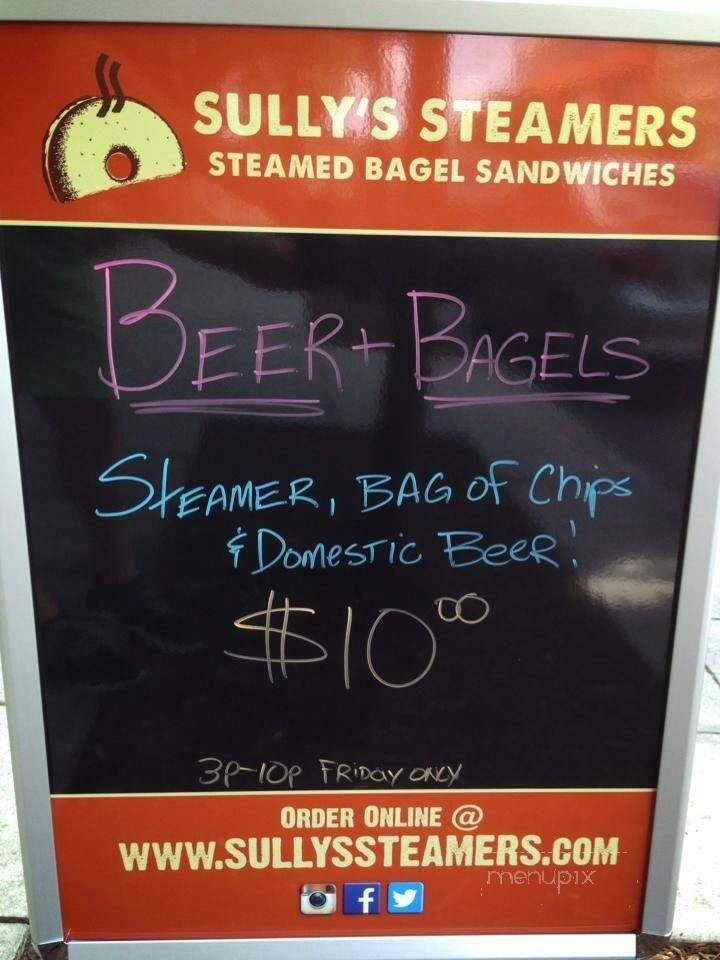 SULLY'S STEAMERS
STEAMED BAGEL SANDWICHES
BEER + BAGELS
STEAMER, BAG OF Chips
& DOMESTIC BEER!
$10.00
3P-10P FRIDAY ONLY
ORDER ONLINE @
WWW.SULLYSSTEAMERS.COM
menupix